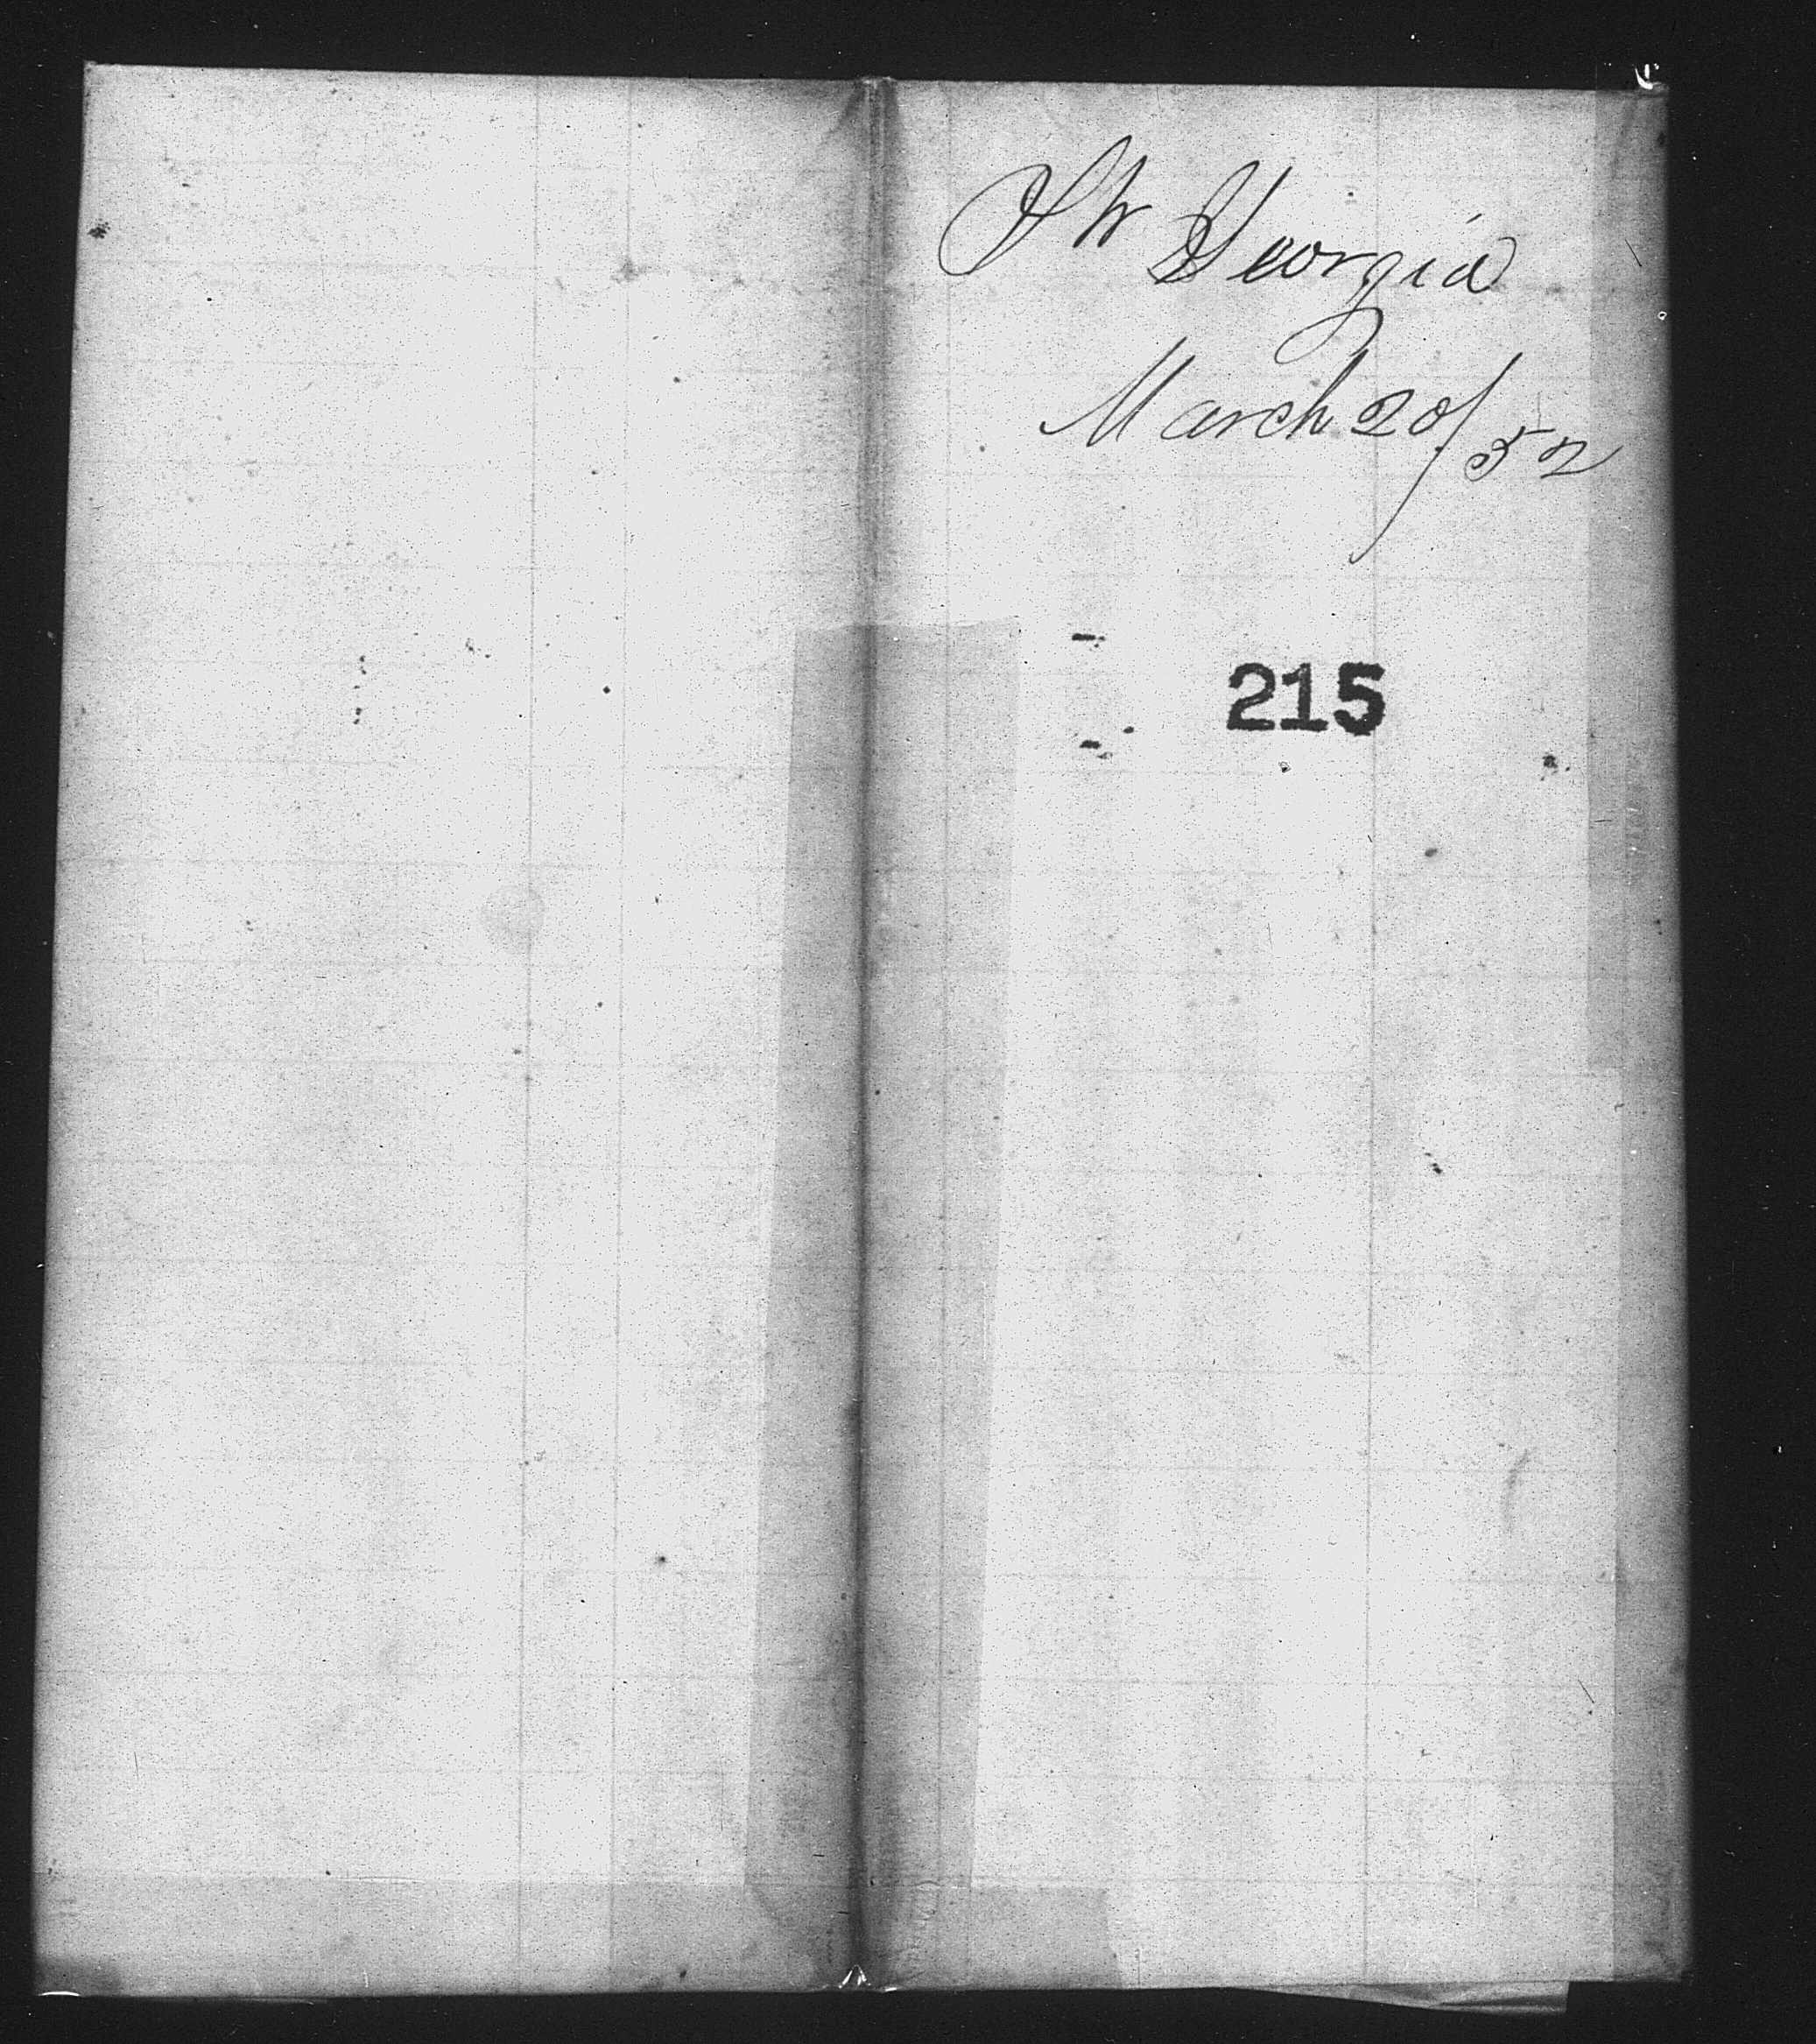 Str Georgia
March 20/52
215